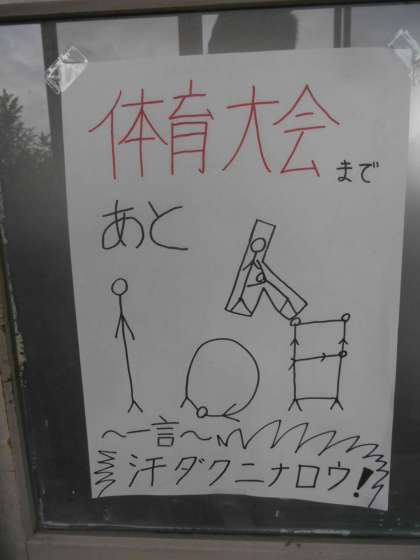 体育大会まで
あと
10日
～一言～
汗ダクニナロウ!